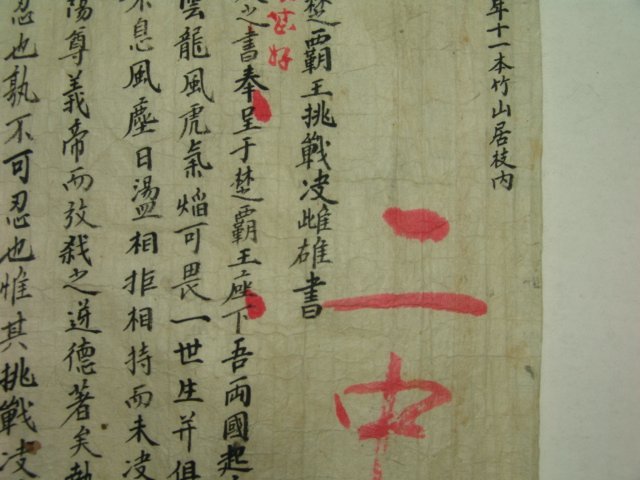 年十一本竹山居技內
二中
楚霸王挑戰决雌雄書
之書奉呈于楚霸王座下吾兩國起
雲龍風虎氣焰可畏一世生并俱
不息風塵日盪相拒相持而未决
陽尊義帝而放殺之逆德著矣
忍也孰不可忍也惟其挑戰决